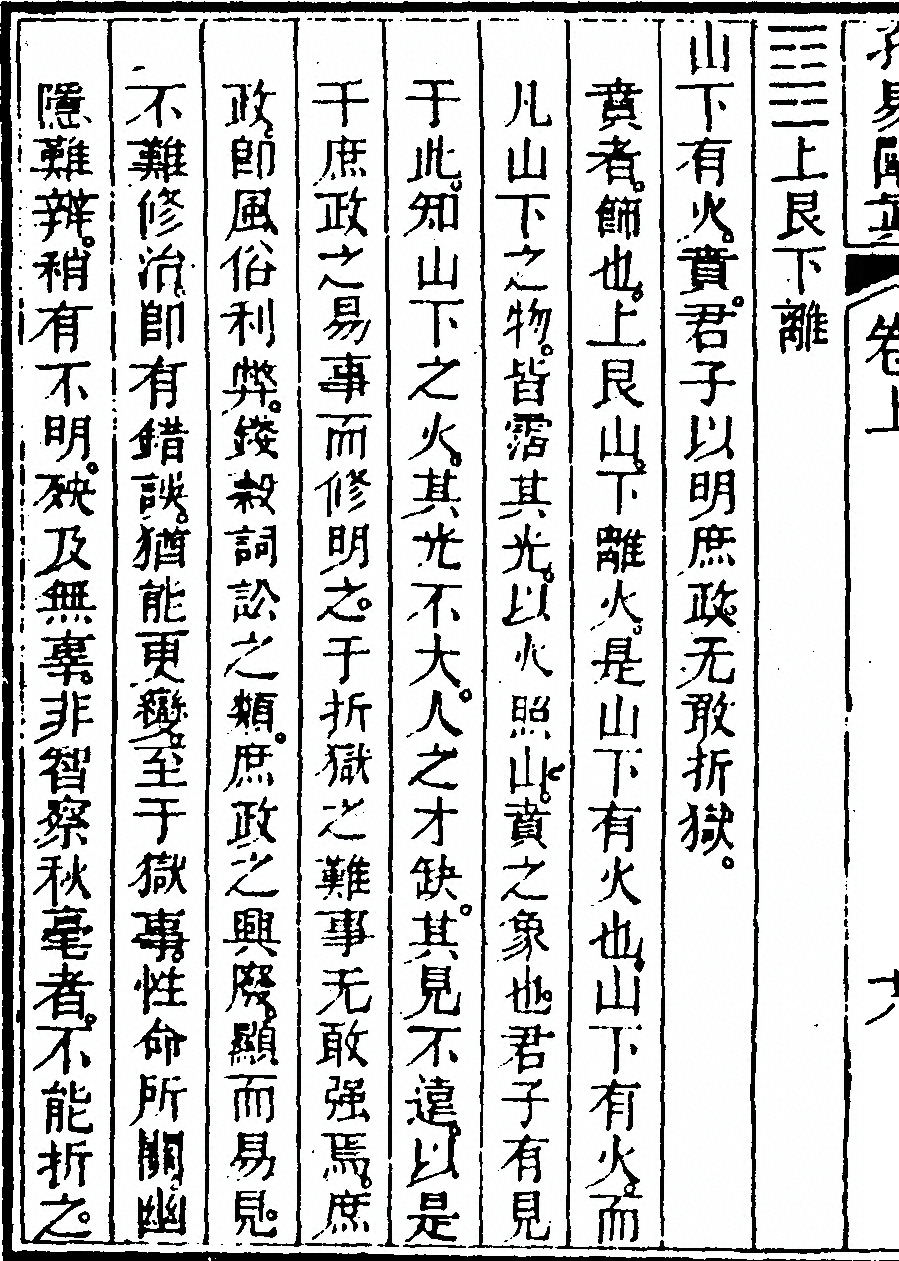 易
卷上
上艮下離
山下有火。賁。君子以明庶政。无敢折獄。
賁者。飾也。上艮山。下離火。是山下有火也。山下有火。而
凡山下之物。皆露其光。以火照山。賁之象也。君子有見
于此。知山下之火。其光不大。人之才缺。其見不遠。以是
千庶政之易事而修明之。于折獄之難事无敢强焉。庶
政。即風俗利弊。錢穀詞訟之類。庶政之興廢。顯而易見。
不難修治。即有錯誤。猶能更變。至于獄事。性命所關。幽
隱難辨。稍有不明。殃及無辜。非智察秋毫者。不能折之。